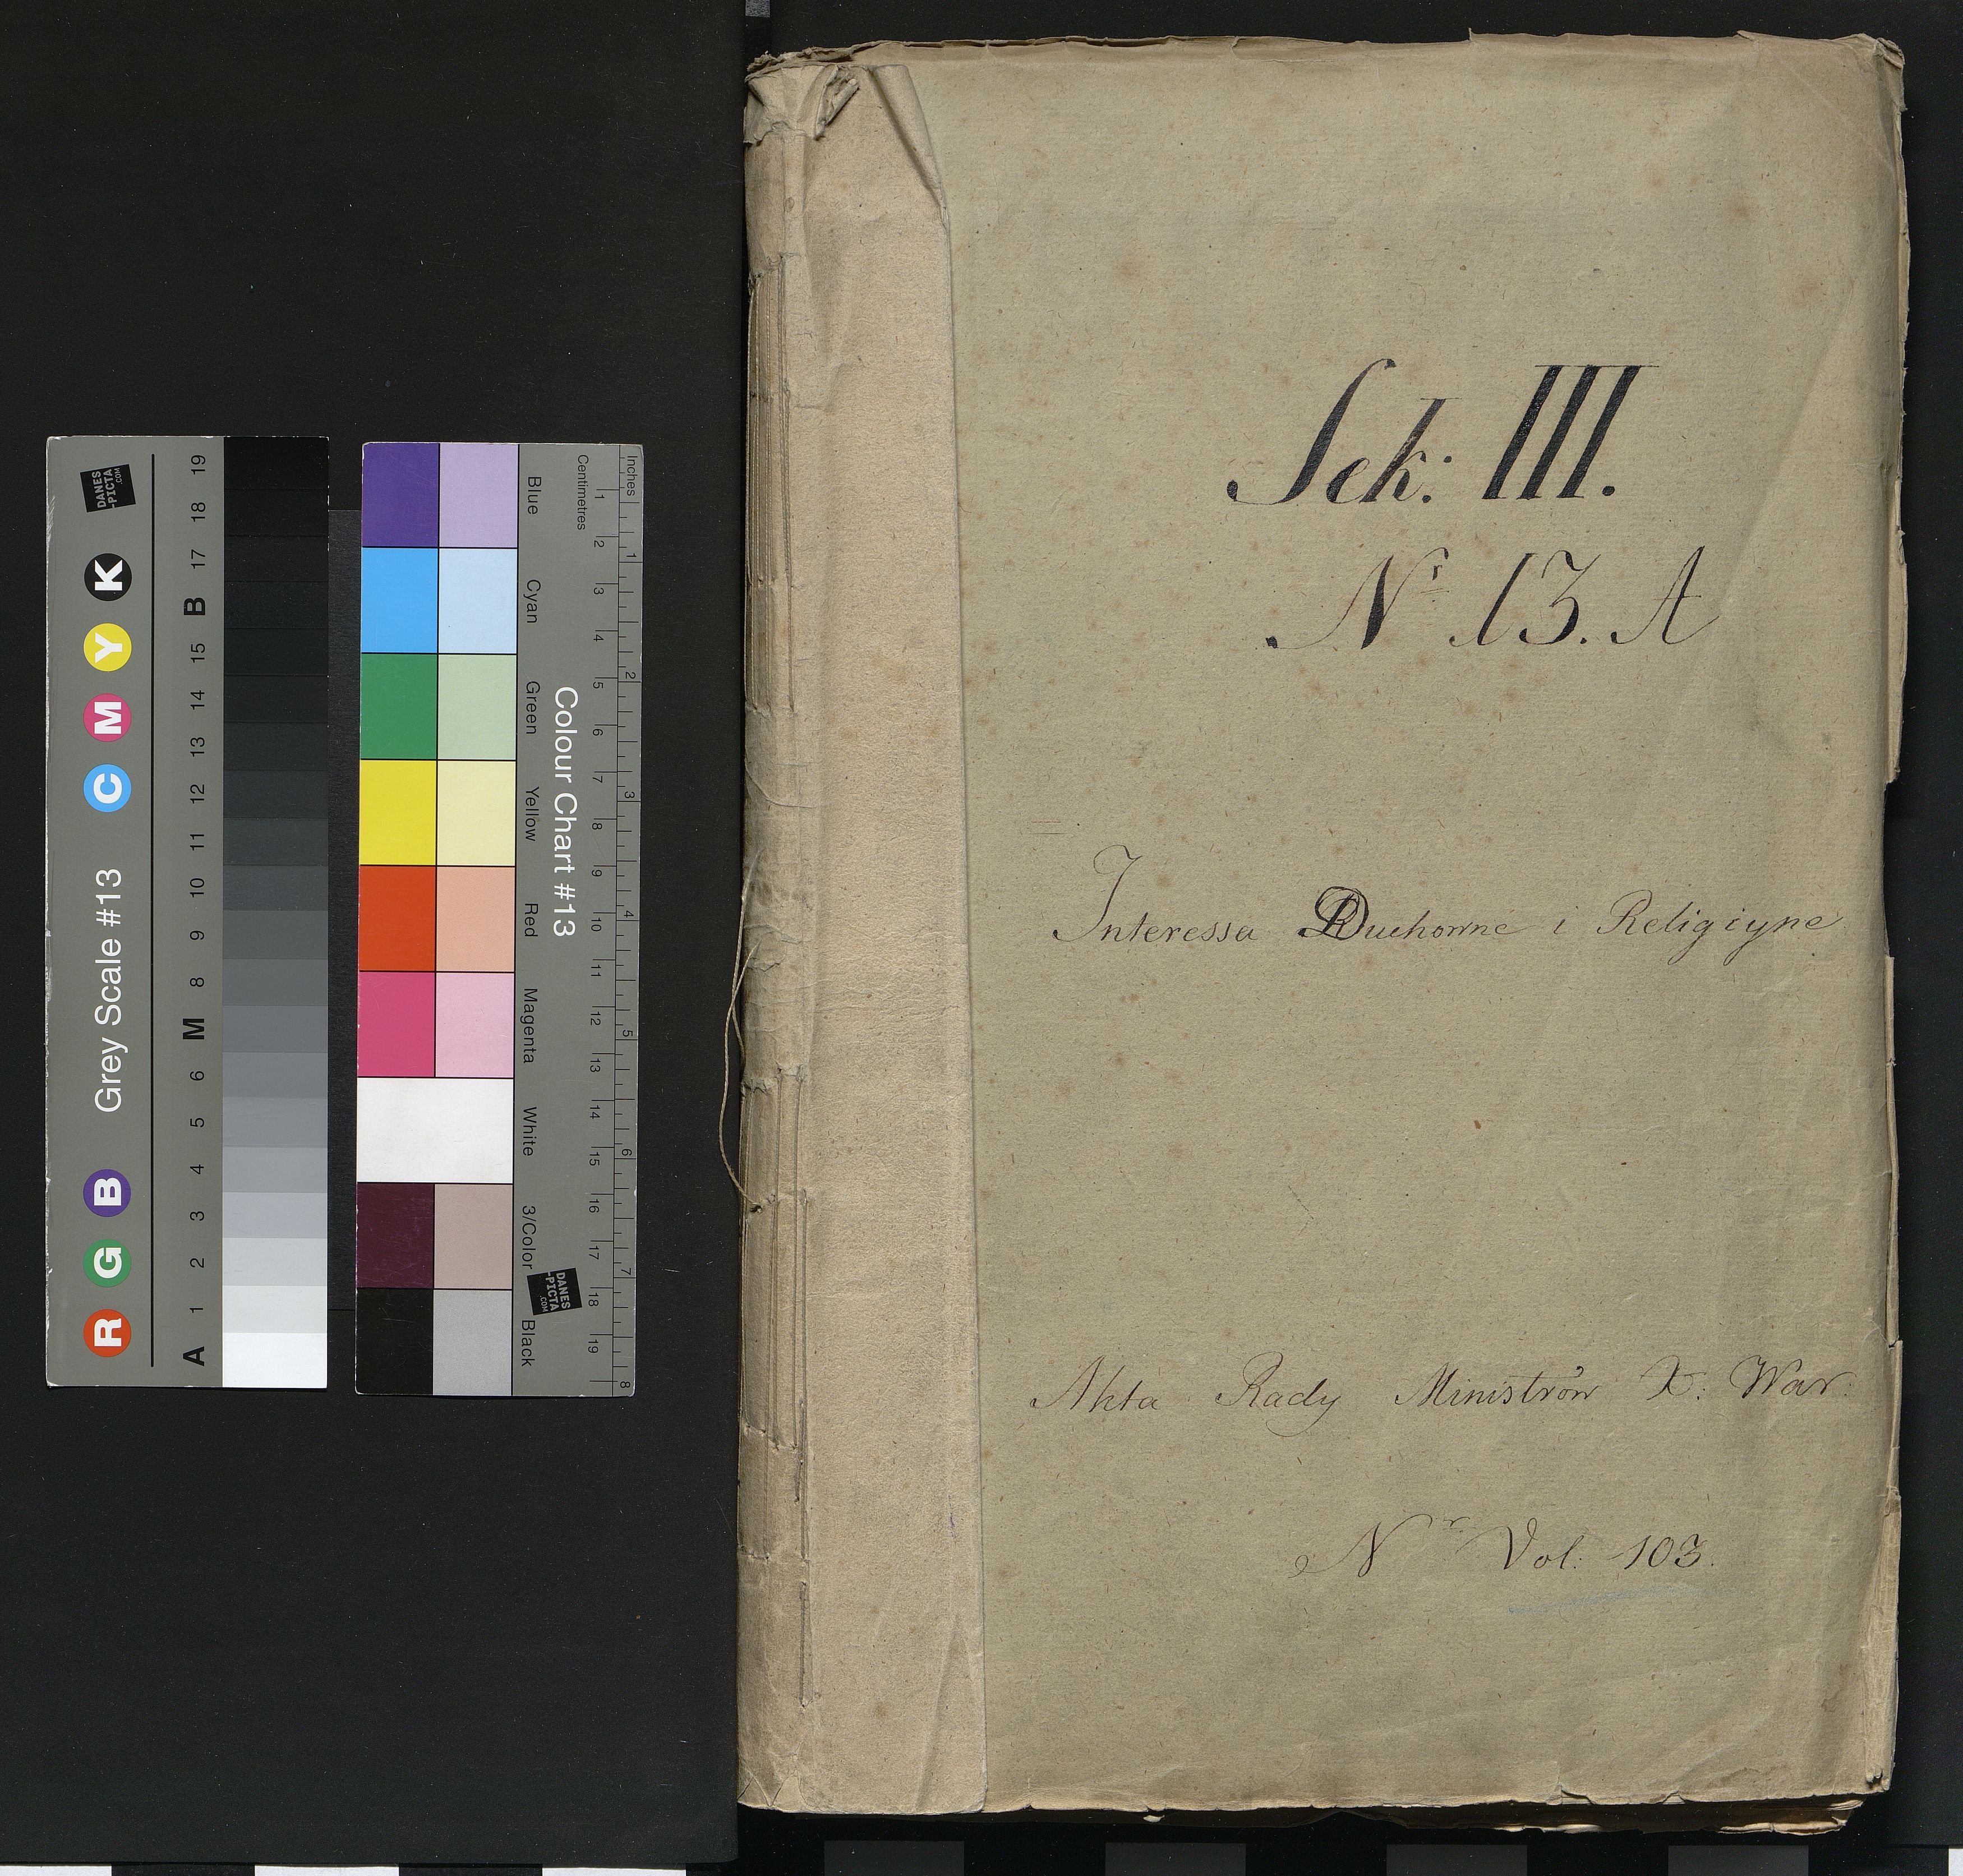 Sek: III.
Nr 13. A
Interessa Duchowne i Religiyne
Akta Rady Ministrów X: War:
Nr Vol: 103.
Grey Scale #13
R G B C M Y K
A 1 2 3 4 5 6 M 8 9 10 11 12 13 14 15 B 17 18 19
DANES
-PICTA
.COM
Colour Chart #13
Blue Cyan Green Yellow Red Magenta White 3/Color Black
Inches
1 2 3 4 5 6 7 8
Centimetres
1 2 3 4 5 6 7 8 9 10 11 12 13 14 15 16 17 18 19
DANES
-PICTA
.COM